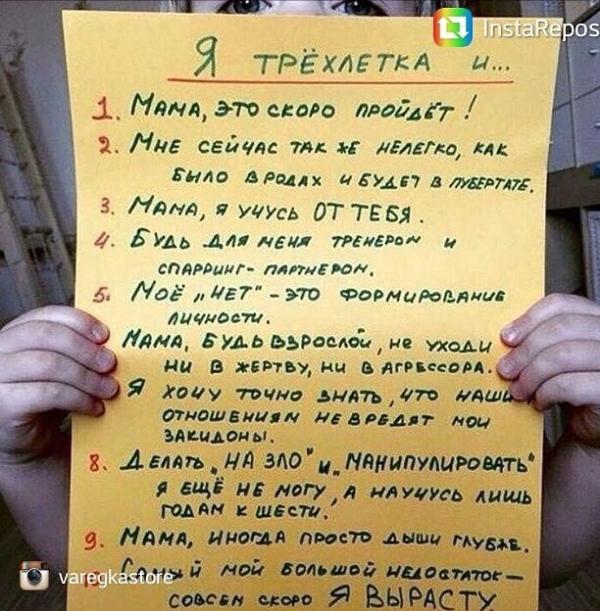 InstaRepos
Я ТРЁХЛЕТКА И...
1. МАМА, ЭТО СКОРО ПРОЙДЁТ!
2. МНЕ СЕЙЧАС ТАК ЖЕ НЕЛЕГКО, КАК
БЫЛО В РОДАХ И БУДЕТ В ПУБЕРТАТЕ.
3. МАМА, Я УЧУСЬ ОТ ТЕБЯ.
4. БУДЬ ДЛЯ МЕНЯ ТРЕНЕРОМ И
СПАРРИНГ-ПАРТНЕРОМ.
5. МОЁ „НЕТ" - ЭТО ФОРМИРОВАНИЕ
ЛИЧНОСТИ.
МАМА, БУДЬ ВЗРОСЛОЙ, НЕ УХОДИ
НИ В ЖЕРТВУ, НИ В АГРЕССОРА.
Я ХОЧУ ТОЧНО ЗНАТЬ, ЧТО НАШИМ
ОТНОШЕНИЯМ НЕ ВРЕДЯТ МОИ
ЗАКИДОНЫ.
8. ДЕЛАТЬ „НА ЗЛО" И „МАНИПУЛИРОВАТЬ"
Я ЕЩЁ НЕ МОГУ, А НАУЧУСЬ ЛИШЬ
ГОДАМ К ШЕСТИ.
9. МАМА, ИНОГДА ПРОСТО ДЫШИ ГЛУБЖЕ.
varegkastore САМЫЙ МОЙ БОЛЬШОЙ НЕДОСТАТОК -
СОВСЕМ СКОРО Я ВЫРАСТУ